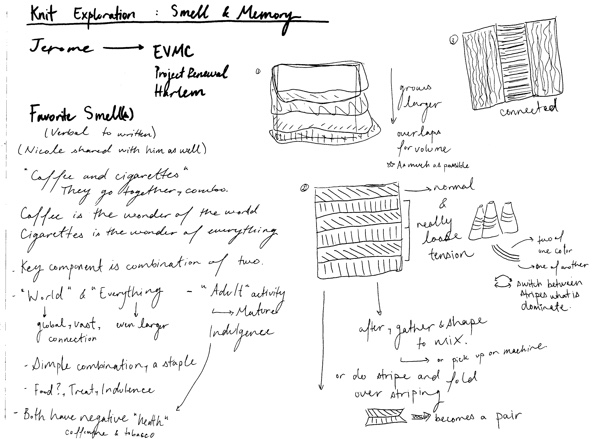 Knit Exploration : Smell & Memory
Jerome → EVMC
Project Renewal
Harlem
Favorite Smell(s)
(Verbal to written)
(Nicole shared with him as well)
"Coffee and cigarettes"
They go together, combo.
Coffee is the wonder of the world
Cigarettes is the wonder of everything
- Key component is combination of two.
- "World" & "Everything
global, vast, connection
even larger
- "Adult" activity
→ Mature
Indulgence
- Simple combination, a staple
- Food?, Treat, Indulence
- Both have negative "health"
caffeine & tobacco
①
grows larger
overlaps for volume
☆ As much as possible
②
→ normal
&
really loose tension
two of one color
one of another
switch between stripes what is dominate.
after, gather & shape to mix.
→ or pick up on machine.
or do stripe and fold over striping
becomes a pair
connected